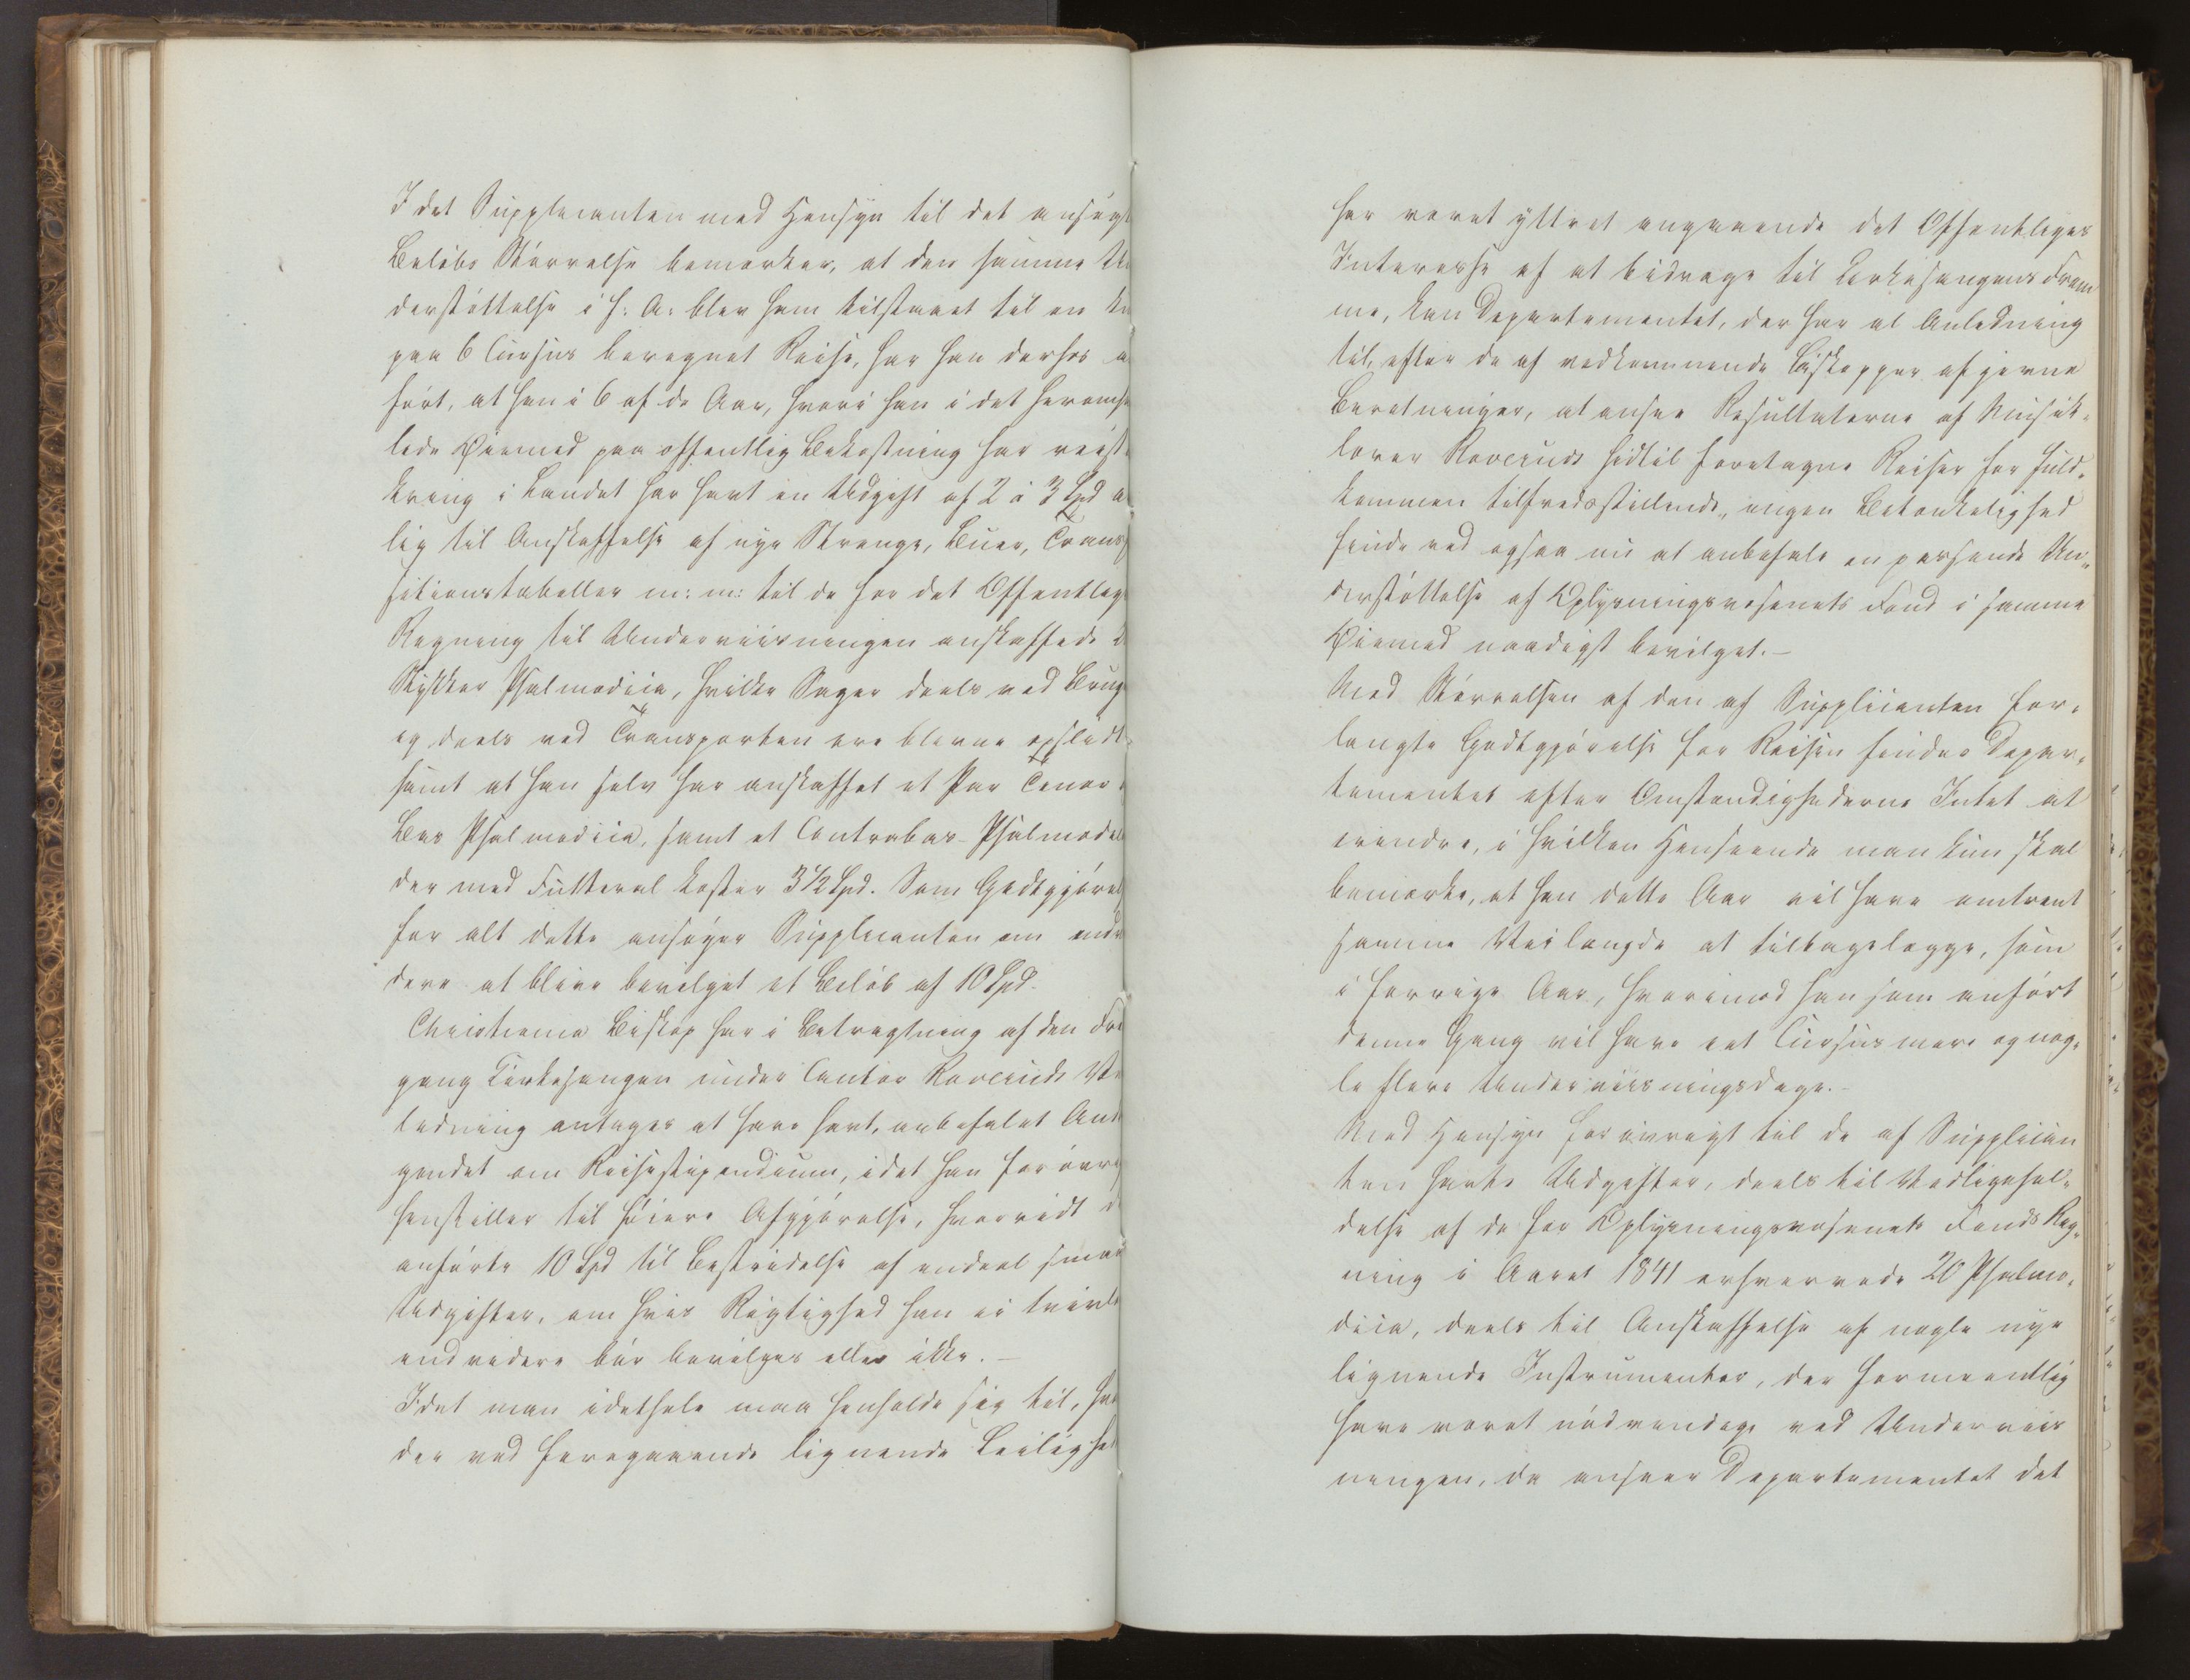 I det Supplicanten med Hensyn til det ansøgt
Beløbs Størrelse bemærker, at den samme Un
derstøttelse i f: A: blev ham tilstaaet til en ku
paa 6 Cursus beregnet Reise, har han derhos a
ført, at han i 6 af de Aar, hvori han i det heromh
lede Øiemed paa offentlig Bekostning har reist
kring i Landet har havt en Udgift af 2 à 3 Spd a
lig til Anskaffelse af nye Strenge, Buer, Transp
sitionstabeller m: m: til de for det Offentlig
Regning til Underviisningen anskaffede
Stykker Psalmodicia, hvilke Sager deels ved Brug
og deels ved Transporten ere blevne opslidt
samt at han selv har anskaffet et Par Tenor
Bas Psalmodicia, samt et Contrabas-Psalmodi
der med Futteral koster 3 1/2 Spd. Som Godtgjørel
for alt dette ansøger Supplicanten om end
dere at blive bevilget et Beløb af 10 Spd.
Christiania Biskop har i Betragtning af den Fre
gang Kirkesangen under Cantor Roveruds Ve
ledning antages at have havt, anbefalet And
gendet om Reisestipendium, idet han forøvri
henstiller til høiere Afgjørelse, hvorvidt d
anførte 10 Spd til Bestridelse af endeel smaa
Udgifter, om hvis Rigtighed han ei tvivle
endvidere bør bevilges eller ikke. —
Idet man idethele maa henholde sig til, hva
der ved foregaaende lignende Leilighe
har været yttret angaaende det Offentliges
Interesse af at bidrage til Kirkesangens Frem
me, kan Departementet, der har al Anledning
til, efter de af vedkommende Biskopper afgivne
Beretninger, at ansee Resultaterne af Musik-
lærer Roveruds hidtil foretagne Reiser for fuld-
kommen tilfredsstillende, ingen Betænkelighed
finde ved ogsaa nu at anbefale en passende Un-
derstøttelse af Oplysningsvæsenets Fond i samme
Øiemed naadigst bevilget. —
Med Størrelsen af den af Supplicanten for-
langte Godtgjørelse for Reisen finder Depar-
tementet efter Omstændighederne Intet at
erindre, i hvilken Henseende man kun skal
bemærke, at han dette Aar vil have omtrent
samme Veilængde at tilbagelægge, som
i forrige Aar, hvorimod han som anført
denne Gang vil have eet Cursus mere og nog-
le flere Underviisningsdage. —
Med Hensyn forøvrigt til de af Supplican
ten havte Udgifter, deels til Vedligehol-
delse af de for Oplysningsvæsenets Fonds Reg-
ning i Aaret 1841 erhvervede 20 Psalmo-
dicia, deels til Anskaffelse af nogle nye
lignende Instrumenter, der formeentlig
have været nødvendige ved Underviis
ningen, da anseer Departementet det